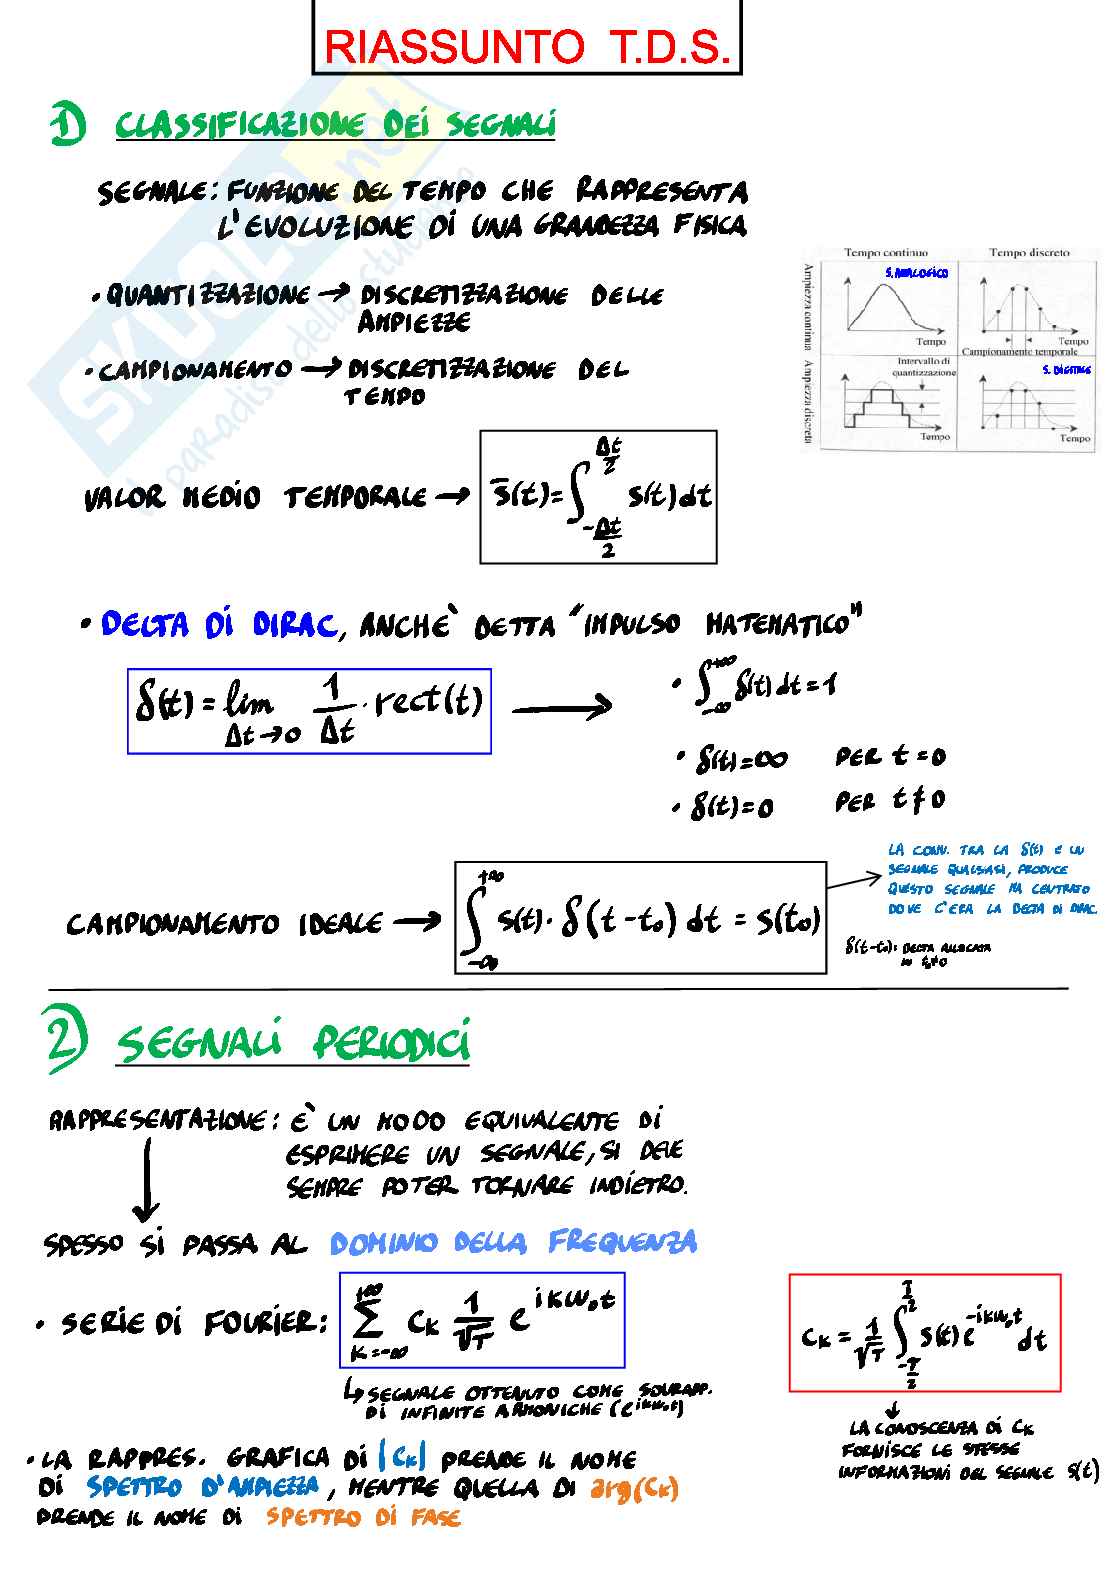 RIASSUNTO T.D.S.
1) CLASSIFICAZIONE DEI SEGNALI
SEGNALE: FUNZIONE DEL TEMPO CHE RAPPRESENTA
L'EVOLUZIONE DI UNA GRANDEZZA FISICA
• QUANTIZZAZIONE → DISCRETIZZAZIONE DELLE
AMPIEZZE
• CAMPIONAMENTO → DISCRETIZZAZIONE DEL
TEMPO
Tempo continuo Tempo discreto
Ampiezza continua Ampiezza discreta
S. ANALOGICO
Tempo Tempo
Campionamento temporale
Intervallo di
quantizzazione
S. DIGITALE
Tempo Tempo
VALOR MEDIO TEMPORALE → s̄(t) = ∫_{-Δt/2}^{Δt/2} s(t) dt
• DELTA DI DIRAC, ANCHE` DETTA "IMPULSO MATEMATICO"
δ(t) = lim_{Δt→0} 1/Δt · rect(t) →
• ∫_{-∞}^{+∞} δ(t) dt = 1
• δ(t) = ∞ PER t = 0
• δ(t) = 0 PER t ≠ 0
CAMPIONAMENTO IDEALE → ∫_{-∞}^{+∞} s(t) · δ(t - t₀) dt = s(t₀)
LA CONV. TRA LA δ(t) E UN
SEGNALE QUALSIASI, PRODUCE
QUESTO SEGNALE MA CENTRATO
DOVE C'ERA LA DELTA DI DIRAC.
δ(t-t₀): DELTA ALLOCATA
IN t₀≠0
2) SEGNALI PERIODICI
RAPPRESENTAZIONE: E` UN MODO EQUIVALENTE DI
ESPRIMERE UN SEGNALE, SI DEVE
SEMPRE POTER TORNARE INDIETRO.
SPESSO SI PASSA AL DOMINIO DELLA FREQUENZA
• SERIE DI FOURIER: Σ_{K=-∞}^{+∞} C_K 1/√T e^{iKω₀t}
↳ SEGNALE OTTENUTO COME SOVRAPP.
DI INFINITE ARMONICHE (e^{iKω₀t})
C_K = 1/√T ∫_{-T/2}^{T/2} s(t) e^{-iKω₀t} dt
LA CONOSCENZA DI C_K
FORNISCE LE STESSE
INFORMAZIONI DEL SEGNALE s(t)
• LA RAPPRES. GRAFICA DI |C_K| PRENDE IL NOME
DI SPETTRO D'AMPIEZZA, MENTRE QUELLA DI arg(C_K)
PRENDE IL NOME DI SPETTRO DI FASE